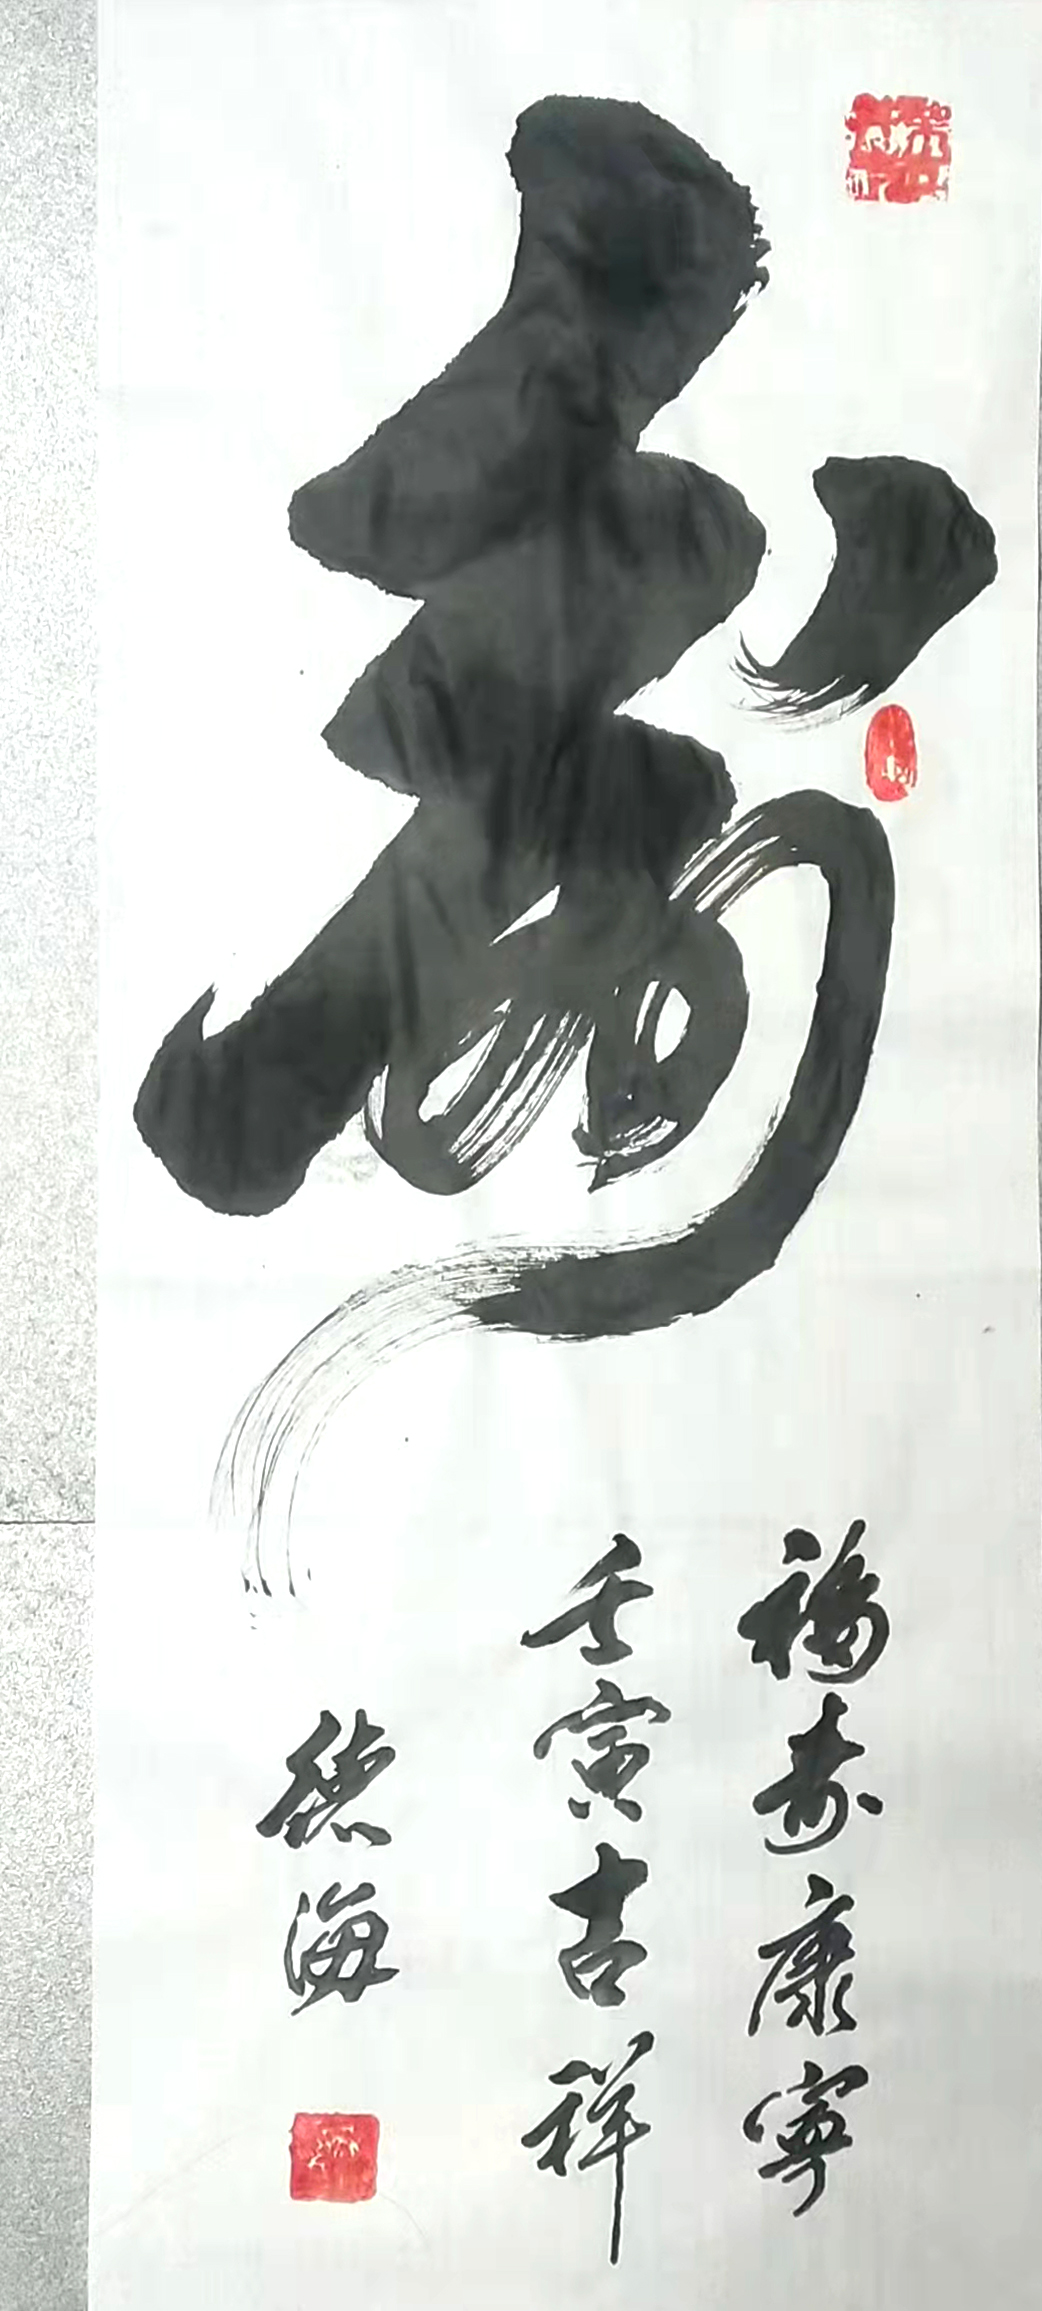 寿
福寿康寧
壬寅吉祥
德海